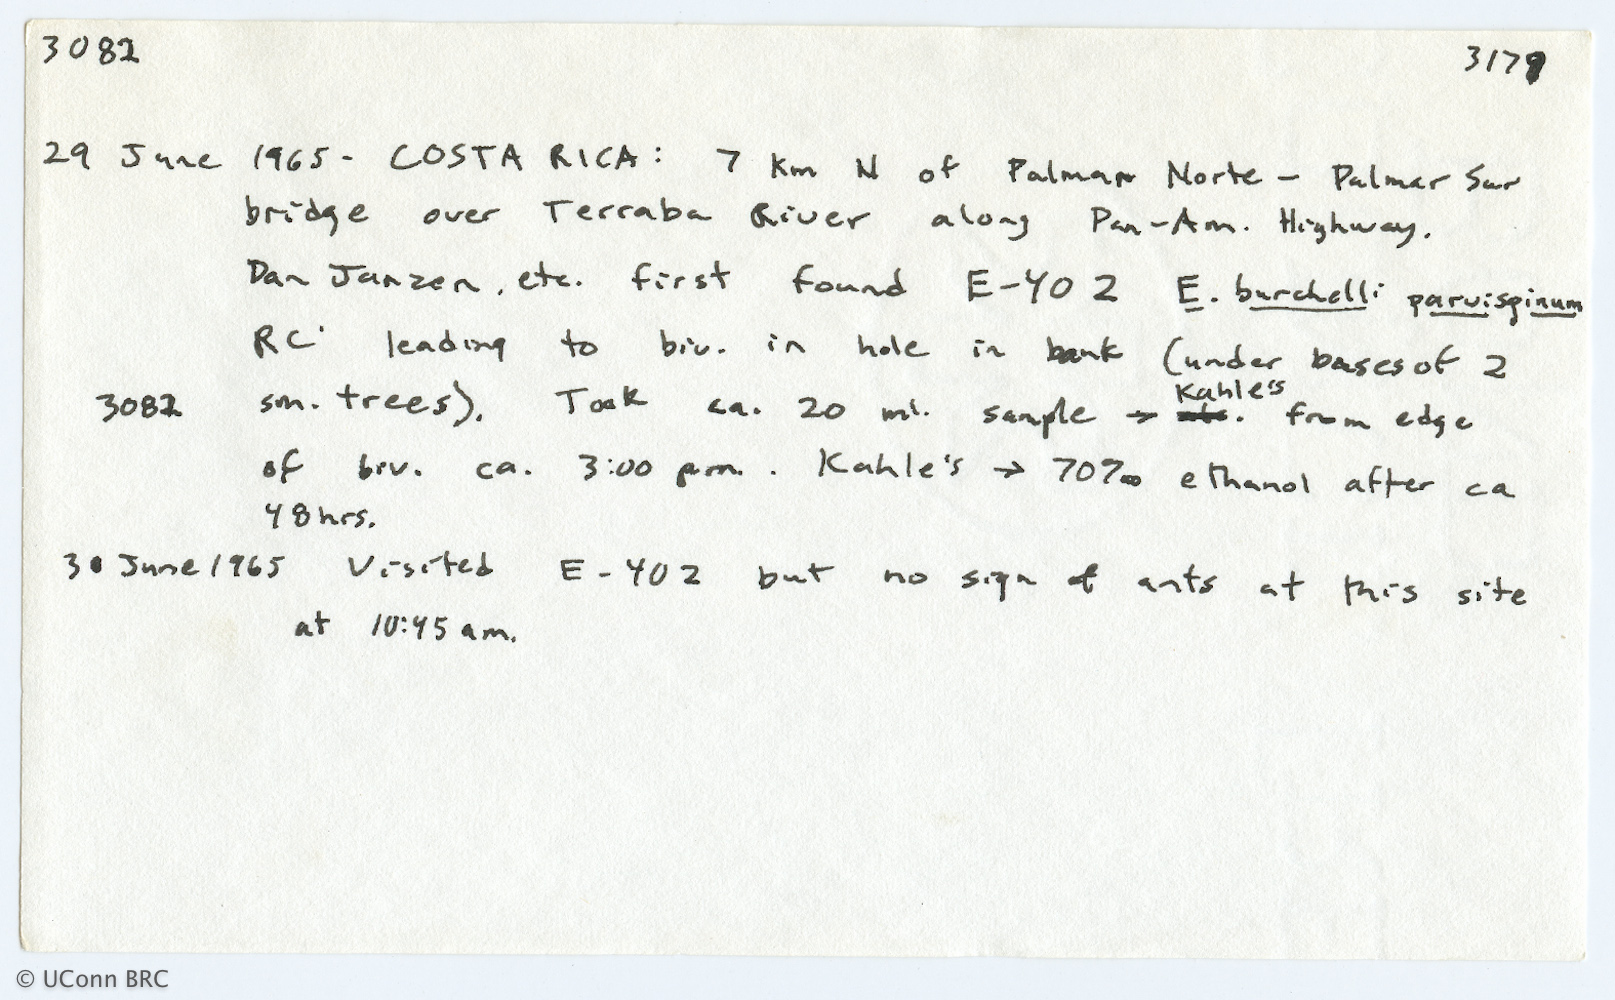 3082 3179
29 June 1965 - COSTA RICA: 7 Km N of Palmar Norte - Palmar Sur
bridge over Terraba River along Pan-Am. Highway.
Dan Janzen, etc. first found E-402 E. burchelli parvispinum
RC leading to biv. in hole in bank (under bases of 2
3082 sm. trees). Took ca. 20 ml. sample → Kahle's from edge
of biv. ca. 3:00 p.m. Kahle's → 70% ethanol after ca
48 hrs.
30 June 1965 Visited E-402 but no sign of ants at this site
at 10:45 am.
© UConn BRC